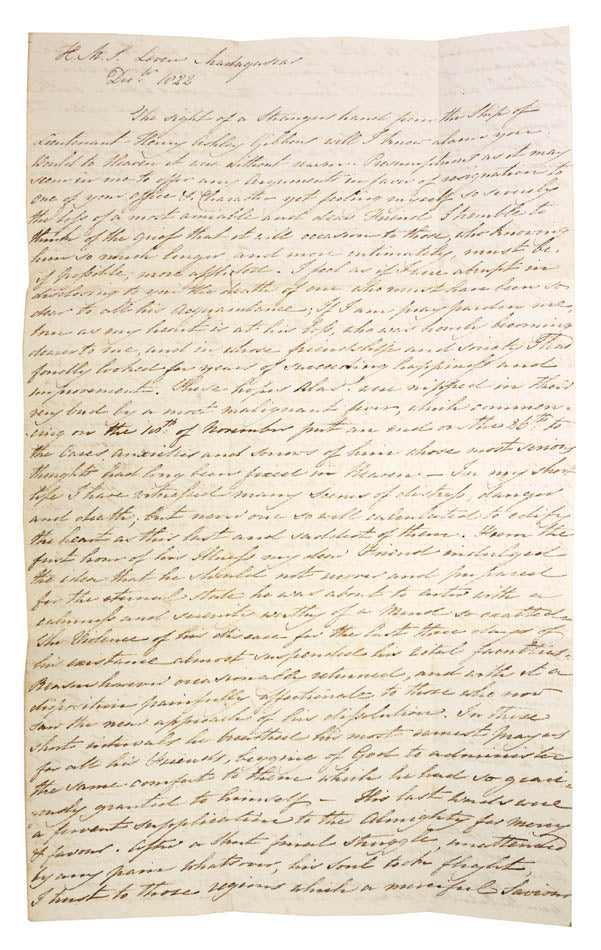 H. M. S. Leven Madagascar
Decr. 1822
The sight of a Strangers hand from the Ship of
Lieutenant Henry Ashley Gibbons will I know alarm you
Would to Heaven it was without reason. Presumptuous as it may
seem in me to offer any arguments in favor of resignation to
one of your office & Character yet feeling myself so severely
the loss of a most amiable and dear Friend I tremble to
think of the grief that it will occasion to those, who knowing
him so much longer and more intimately, must be,
if possible, more afflicted. I feel as if I were abrupt in
disclosing to you the death of one who must have been so
dear to all his acquaintance; If I am pray pardon me,
torn as my heart is at his loss, who was hourly becoming
dearer to me, and in whose friendship and society I had
fondly looked for years of succeeding happiness and
improvement. These hopes Alas! are nipped in their
very bud by a most malignant fever, which commen-
cing on the 10th. of November put an end on the 26th. to
the cares anxieties and sorrows of him whose most serious
thoughts had long been fixed in Heaven – In my short
life I have witnessed many scenes of distress, danger
and death; but never one so well calculated to edify
the heart as this last and saddest of them. From the
first hour of his Illness my dear Friend indulged
the idea that he should not recover and prepared
for the eternal state he was about to enter with a
calmness and serenity worthy of a Mind so exalted –
The Violence of his disease for the last three days of
his existence almost suspended his vital faculties –
Reason however occasionally returned, and with it a
disposition painfully affectionate to those who now
saw the near approach of his dissolution. In these
short intervals he breathed his most earnest prayers
for all his Friends, begging of God to administer
the same comfort to them which he had so graci-
ously granted to himself – His last words were
a fervent supplication to the Almighty for mercy
& favour. After a short final struggle, unattended
by any pain whatsoever, his soul took flight,
I trust to those regions which a merciful Saviour